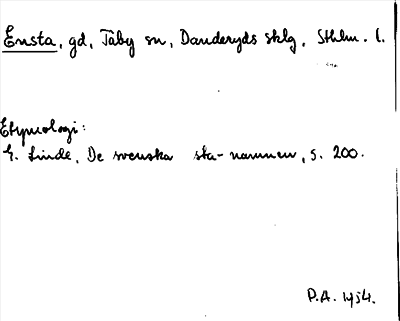 Ensta, gd, Täby sn, Danderyds sklg, Sthlm. l.
Etymologi:
G. Linde, De svenska sta-namnen, s. 200.
P.A. 1954.